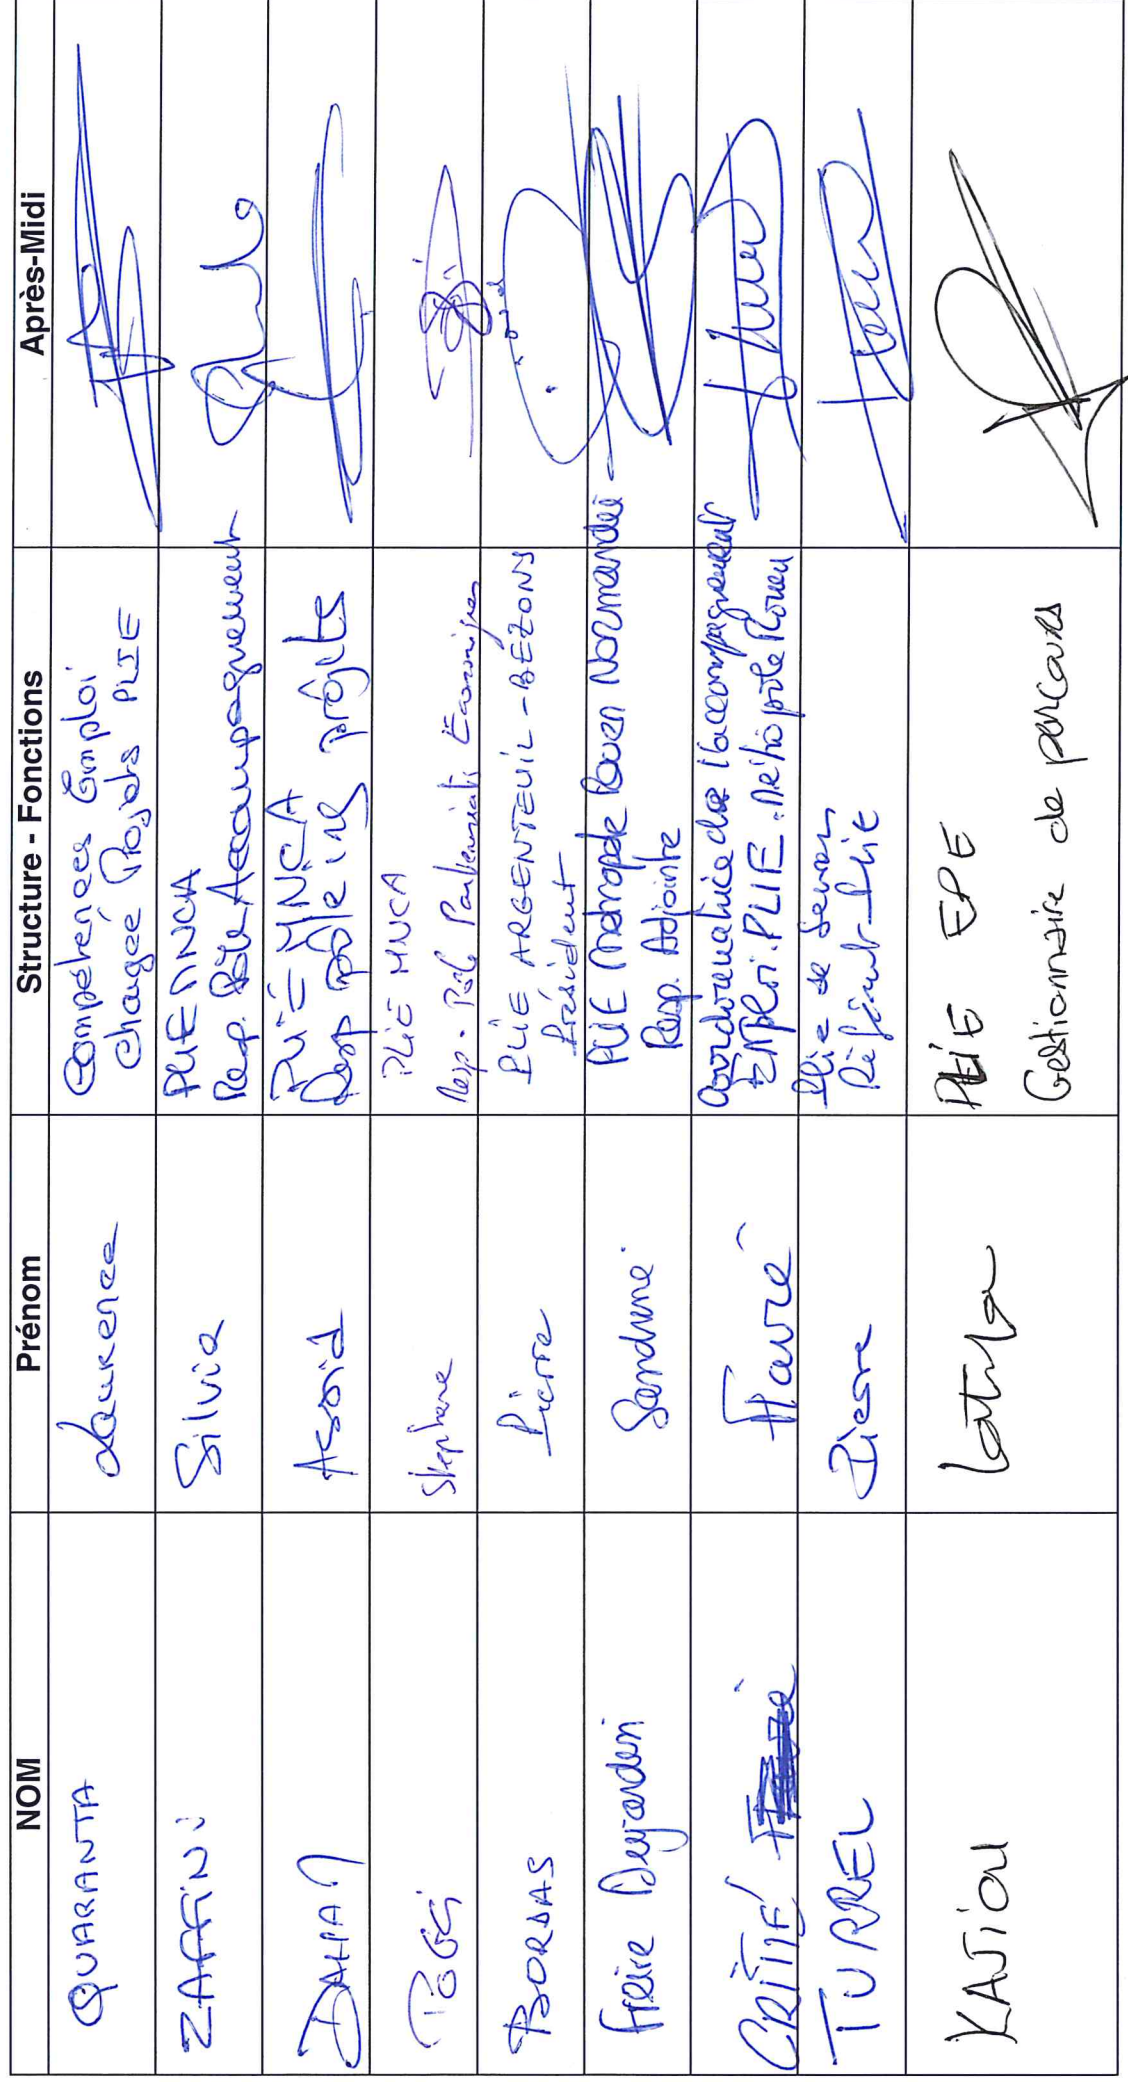 NOM Prénom Structure - Fonctions Après-Midi
QUARANTA Laurence Compétences Emploi
Chargée Projets PLIE
ZAFFINI Silvia PLIE MNCA
Resp. Pôle Accompagnement
DAHAN Resp pôle ing projets
POGGI Stéphane PLIE MNCA
Resp. Pôle Partenariats Economiques
BORDAS Pierre PLIE ARGENTEUIL - BEZONS
Président
Freire Desjardin Sandrine PLIE Métropole Rouen Normandie
Resp. Adjointe
CRITIFÉ Flavie Coordonnatrice de l'accompagnement
Emploi. PLIE. Métropole Rouen
TURREL Pierre Plie de Sevran
Référent Plie
KAJIOU Latifa PLIE EPE
Gestionnaire de parcours